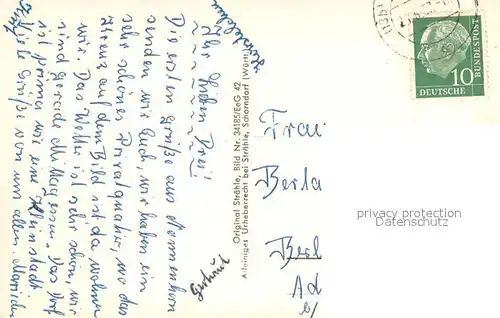 Ihr lieben Drei!
Die ersten Grüße aus Nonnenhorn
senden wir Euch, wir haben ein
sehr schönes Privatquatier, wo das
Kreuz auf dem Bild ist da wohnen
wir. Das Wetter ist sehr schön, wir
sind gerade Mittagessen. Das Dorf
ist prima wie eine Kleinstadt.
Viele Grüße von uns allen.
Gertrud
Original Strähle, Bild Nr. 34185/EeG-42
Alleiniges Urheberrecht bei Strähle, Schorndorf (Württ)
10
DEUTSCHE
BUNDESPOST
Frau
Berta
Berl
Ad
privacy protection
Datenschutz